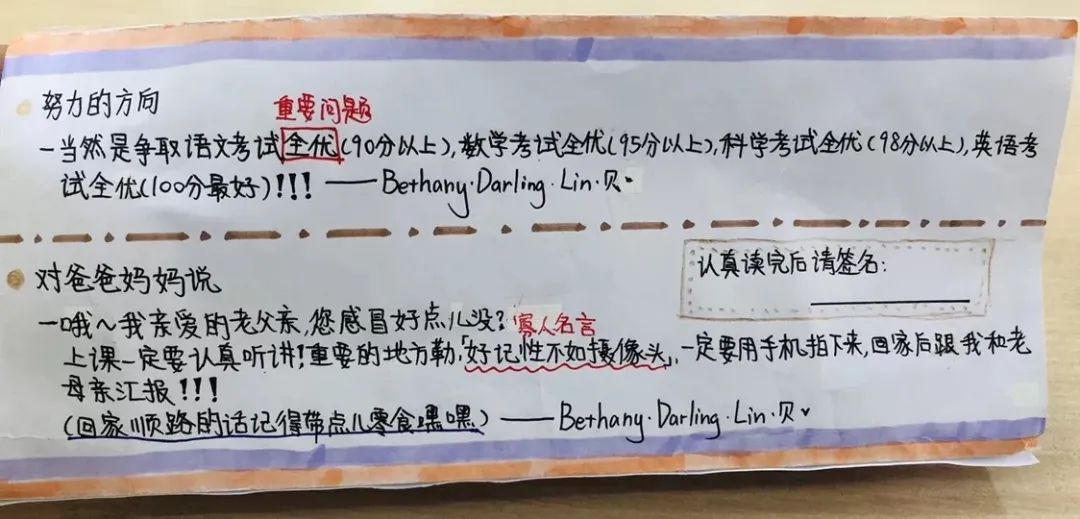 努力的方向
重要问题
-当然是争取语文考试全优(90分以上),数学考试全优(95分以上),科学考试全优(98分以上),英语考
试全优(100分最好)!!! ——Bethany·Darling·Lin·贝
对爸爸妈妈说
认真读完后请签名:
-哦~我亲爱的老父亲,您感冒好点儿没?
寡人名言
上课一定要认真听讲!重要的地方勒,「好记性不如摄像头」,一定要用手机拍下来,回家后跟我和老
母亲汇报!!!
(回家顺路的话记得带点儿零食嘿嘿) ——Bethany·Darling·Lin·贝